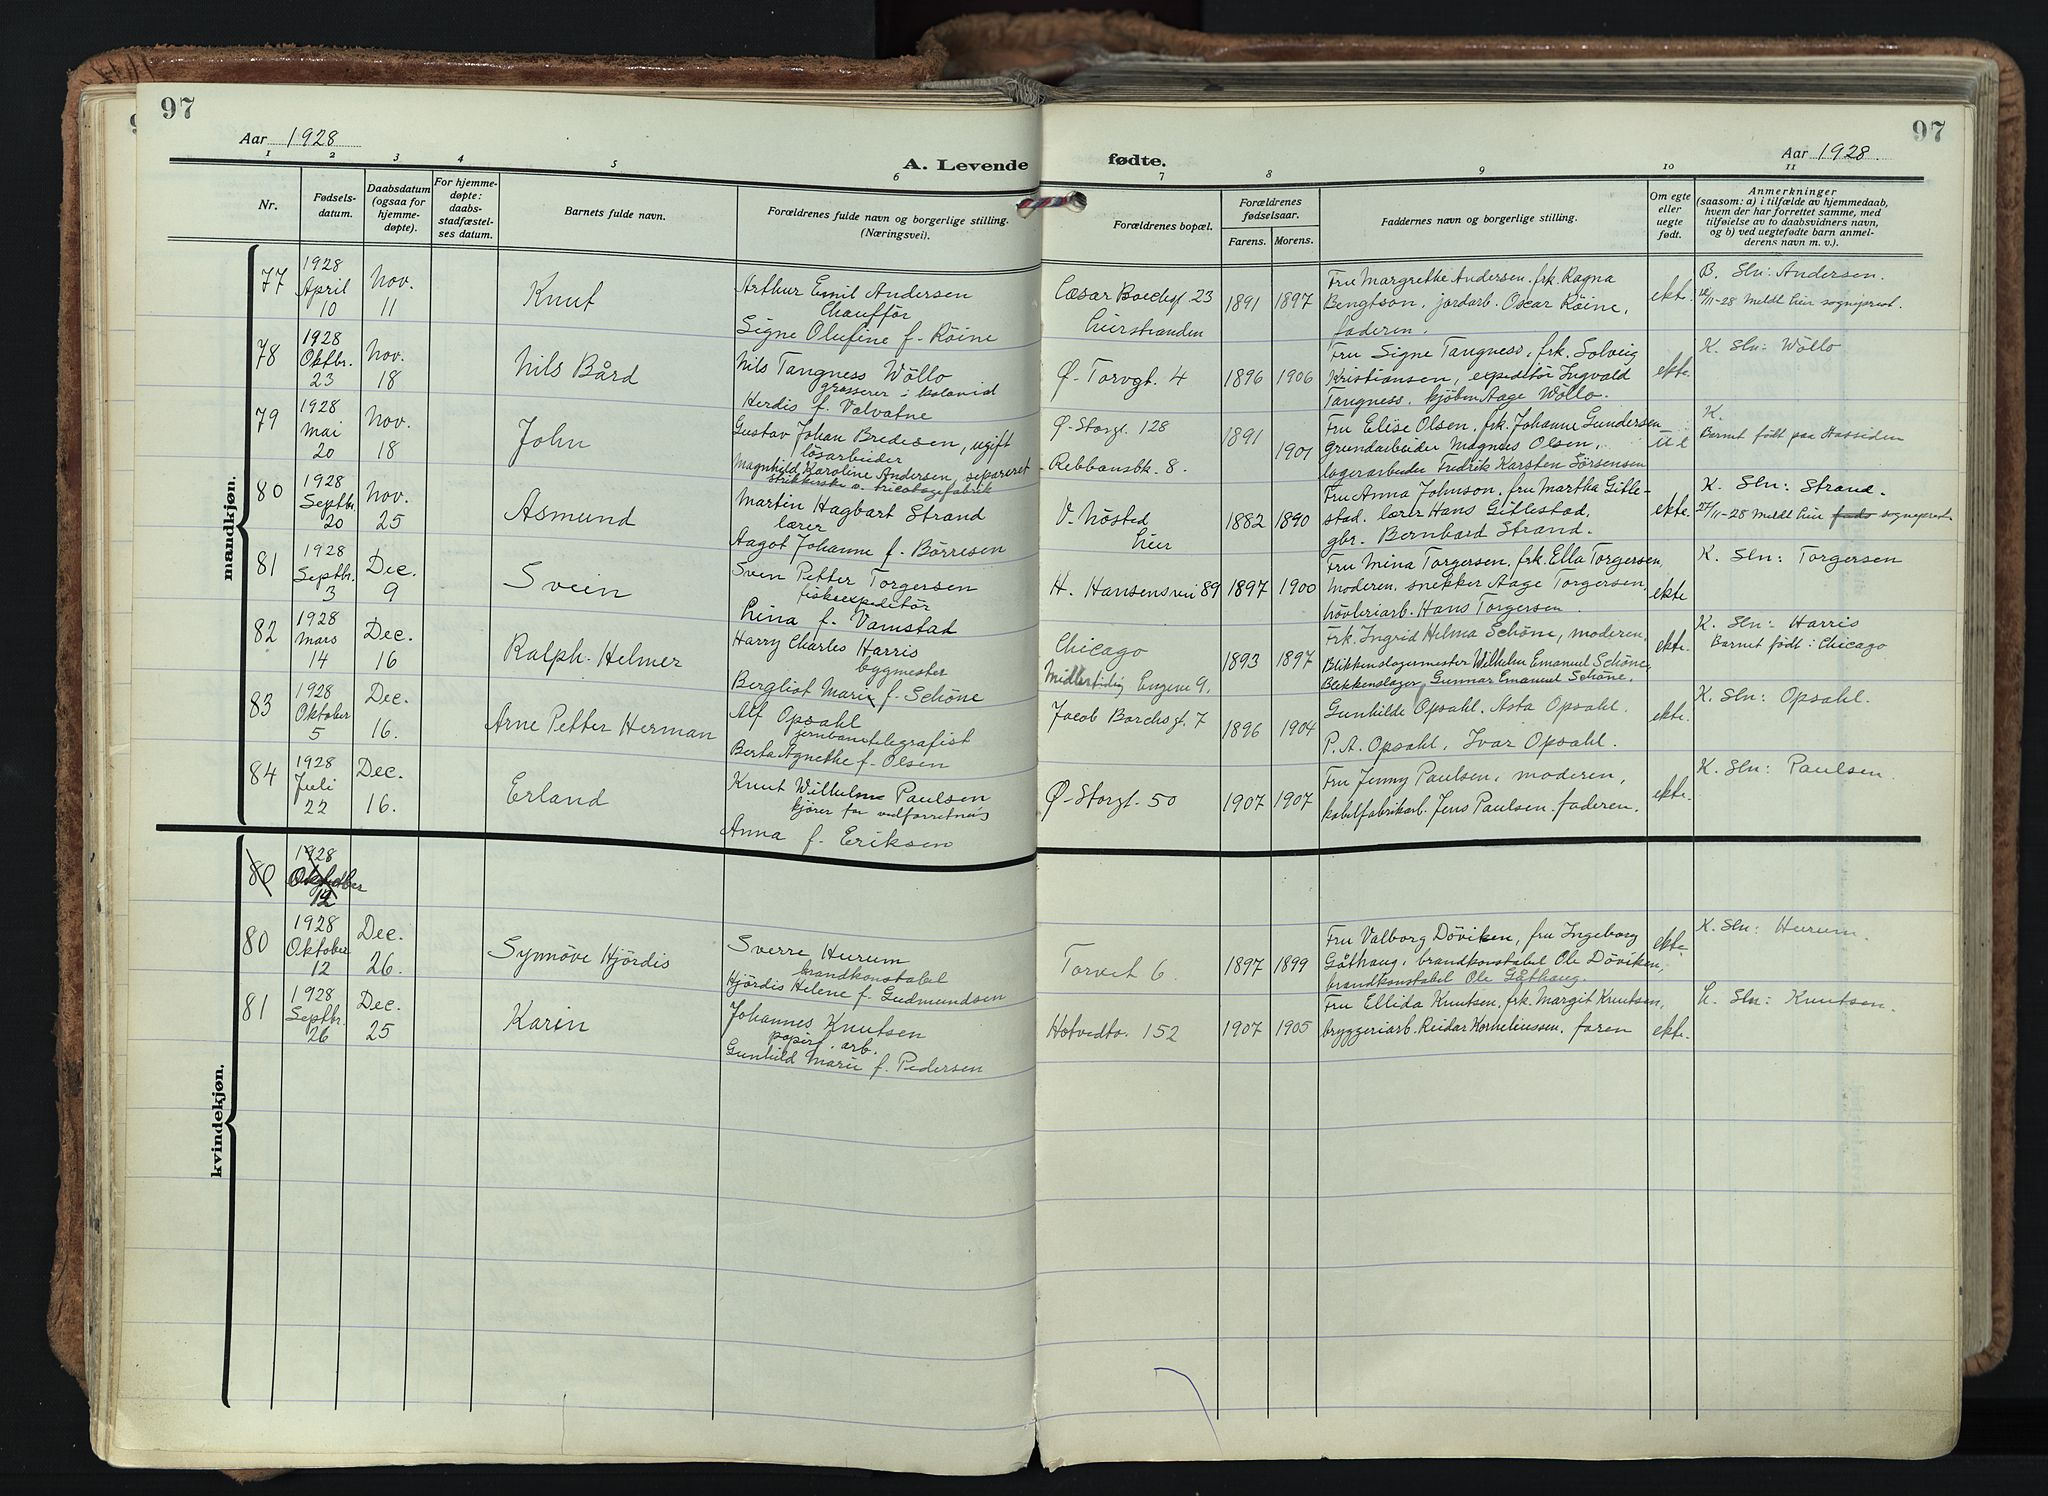 97
Aar 1928
1 2 3 4 5 6
A. Levende
Nr.
Fødsels-
datum.
Daabsdatum
(ogsaa for
hjemme-
døpte).
For hjemme-
døpte:
daabs-
stadfæstel-
ses datum.
Barnets fulde navn.
Forældrenes fulde navn og borgerlige stilling.
(Næringsvei).
97
Aar 1928.
fødte.
7 8 9 10 11
Forældrenes bopæl.
Forældrenes
fødselsaar.
Farens. Morens.
Faddernes navn og borgerlige stilling.
Om egte
eller
uegte
født.
Anmerkninger
(saasom: a) i tilfælde av hjemmedaab,
hvem der har forrettet samme, med
tilføielse av to daabsvidners navn,
og b) ved uegtefødte barn anmel-
derens navn m. v.).
mandkjøn.
77
1928
April
10
Nov.
11
Knut
Arthur Emil Andersen
Chauffør
Signe Olufine f. Röine
Cæsar Boechsgt. 23
Lierstranden
1891 1897
Fru Margrethe Andersen, frk. Ragna
Bengtson, jordarb. Oscar Röine,
faderen.
ekte.
B. Sln: Andersen.
/11-28 Meldt Lier sogneprest.
78
1928
Oktbr.
23
Nov.
18
Nils Bård
Nils Tangness Wöllo
grosserer i kolonial
Herdis f. Valvatne
Ø. Torvgt. 4
1896 1906
Fru Signe Tangness, frk. Solveig
Kristiansen, expeditör Ingvald
Tangness, kjöbm. Aage Wöllo.
ekte.
K. Sln: Wöllo
79
1928
Mai
20
Nov.
18
John
Gustav Johan Bredesen, ugift
lösarbeider
Magnhild Karoline Andersen, separeret
strikkerske v. tricotagefabrik
Ø. Storgt. 128
Rebbansbk. 8.
1891
1901
Fru Elise Olsen, frk. Johanne Gundersen
grundarbeider Magnus Olsen,
lagerarbeider Fredrik Karsten Sörensen
K.
Barnet født paa Hassiden
80
1928
Septbr.
20
Nov.
25
Asmund
Martin Hagbart Strand
lærer
Aagot Johanne f. Börresen
V. Nösted
Lier
1882 1890
Fru Anna Johnson, fru Martha Gille-
stad, lærer Hans Gillestad,
gbr. Bernhard Strand.
ekte.
K. Sln: Strand.
27/11-28 Meldt Lier sogneprest
81
1928
Septbr.
3
Dec.
9
Svein
Sven Petter Torgersen
fiskeexpeditör
Lina f. Vamstad
H. Hansensvei 89
1897 1900
Fru Mina Torgersen, frk. Ella Torgersen,
moderen, snekker Aage Torgersen,
hövleriarb. Hans Torgersen.
ekte
K. Sln: Torgersen
82
1928
Mars
14
Dec.
16
Ralph. Helmer
Harry Charles Harris
bygmester
Bergliot Marie f. Schöne
Chicago
Midlertidig Engene 9.
1893 1897
Frk. Ingrid Helma Schöne, moderen,
Blikkenslagermester Wilhelm Emanuel Schöne,
Blikkenslager Gunnar Emanuel Schöne.
ekte.
K. Sln: Harris
Barnet født i Chicago
83
1928
Oktober
5
Dec.
16.
Arne Petter Herman
Alf Opsahl
jernbanetelegrafist
Berta Agnethe f. Olsen
Jacob Borchsgt. 7
1896 1904
Gunhilde Opsahl. Asta Opsahl.
P. A. Opsahl, Ivar Opsahl.
ekte.
K. Sln: Opsahl.
84
1928
Juli
22
Dec.
16.
Erland
Knut Wilhelm Paulsen
kjører for vedforretning
Anna f. Eriksen
Ø. Storgt. 50
1907 1907
Fru Jenny Paulsen, moderen,
kabelfabrikarb. Jens Paulsen, faderen.
ekte.
K. Sln: Paulsen.
kvindekjøn.
80
1928
Oktober
12
80
1928
Oktober
12
Dec.
26.
Synnöve Hjördis
Sverre Hurum
brandkonstabel
Hjördis Helene f. Gudmundsen
Torvet 6.
1897 1899
Fru Valborg Döviken, fru Ingeborg
Gåthaug, brandkonstabel Ole Döviken,
brandkonstabel Ole Gåthaug.
ekte
K. Sln: Hurum.
81
1928
Septbr.
26
Dec.
25
Karin
Johannes Knutsen
papirf. arb.
Gunhild Marie f. Pedersen
Hotvedto. 152
1907 1905
Fru Ellida Knutsen, frk. Margit Knutsen,
bryggeriarb. Reidar Korneliussen, faren
ekte.
Sln: Knutsen.